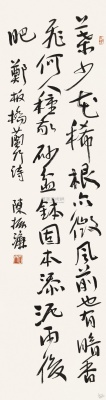 叶少花稀根亦微风前也有暗香
飞何人种取砂盆钵固本添泥雨后
肥 郑板桥兰竹诗 陈振濂